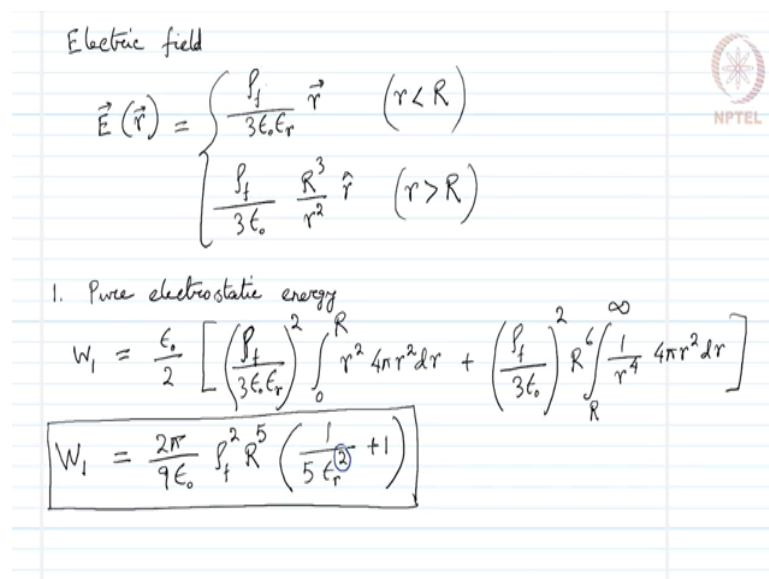 Electric field
NPTEL
E⃗(r⃗) = { ρ_f/(3ε₀ε_r) r⃗ (r<R)
ρ_f/(3ε₀) R³/r² r̂ (r>R)
1. Pure electrostatic energy
W₁ = ε₀/2 [ (ρ_f/(3ε₀ε_r))² ∫₀^R r² 4πr²dr + (ρ_f/(3ε₀))² R⁶ ∫_R^∞ 1/r⁴ 4πr²dr ]
W₁ = 2π/(9ε₀) ρ_f² R⁵ ( 1/(5ε_r²) +1 )